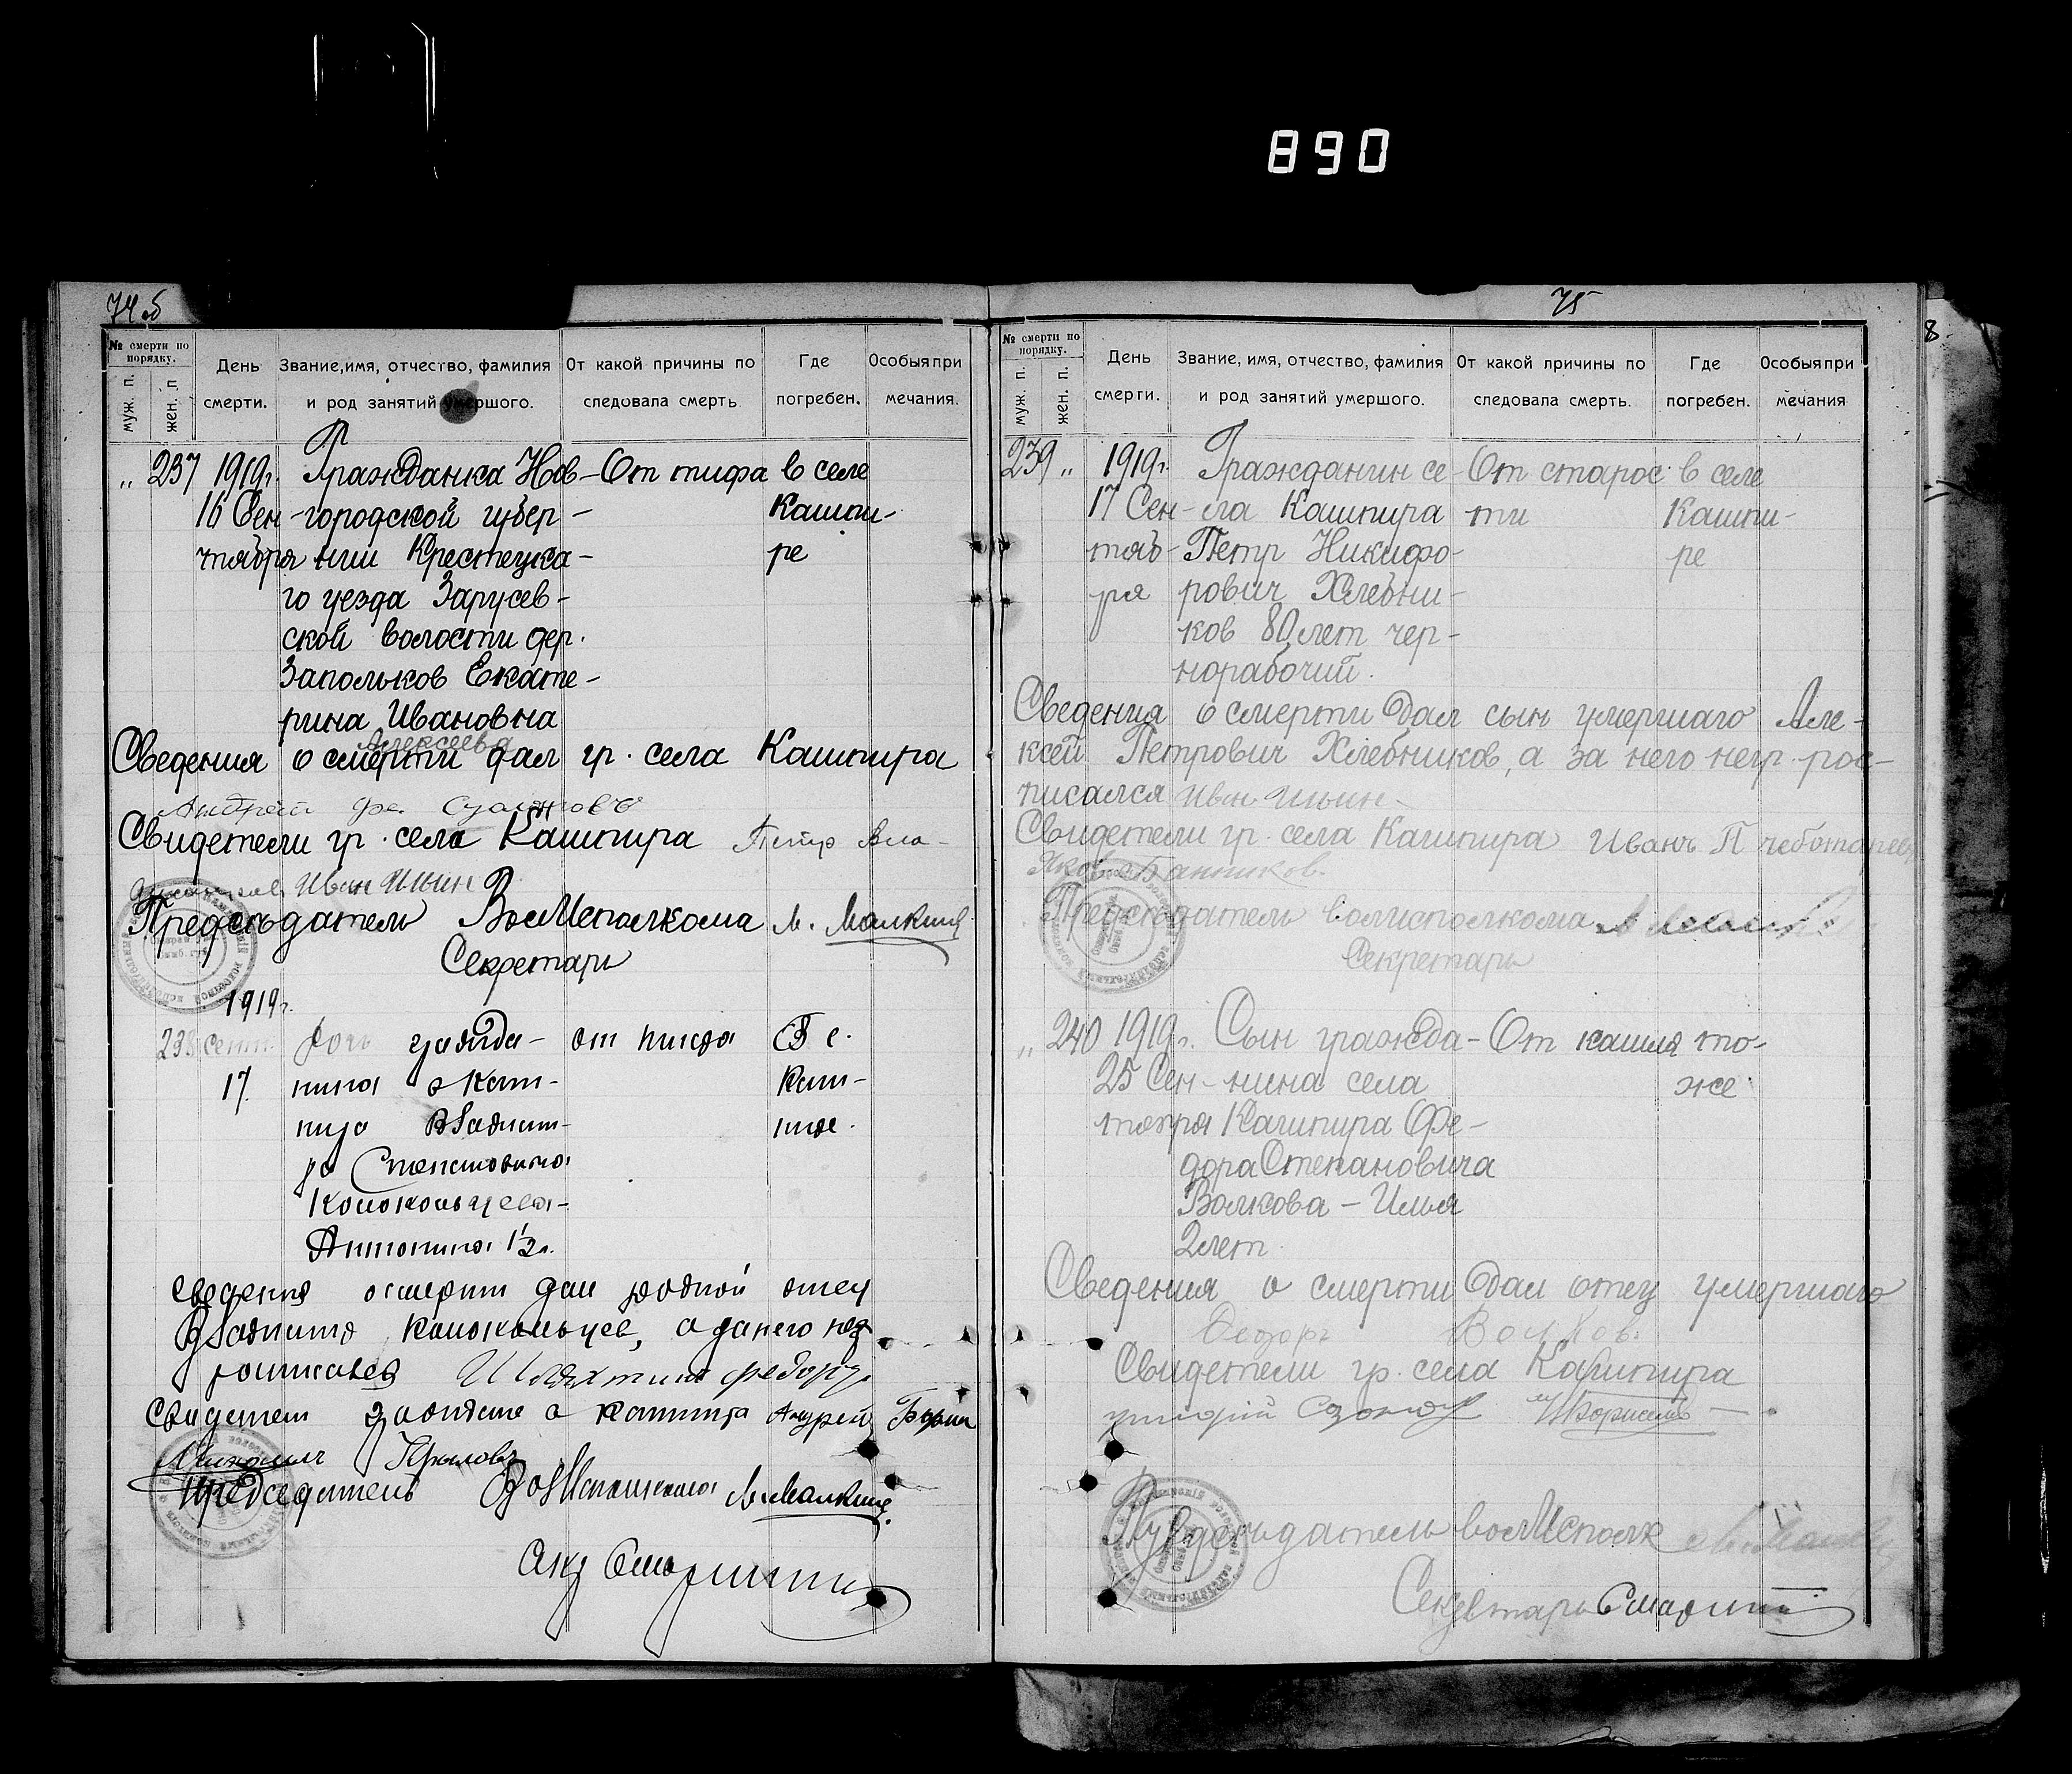 890
74 об
№ смерти по порядку.
муж. п.
жен. п.
День смерти.
Звание, имя, отчество, фамилия и род занятий умершого.
От какой причины по следовала смерть.
Где погребен.
Особыя при мечания.
„ 237 1919г. Гражданка Нов- От тифа в селе
16 Сен- городской губер- Кашпи-
тября нии Крестецка- ре
го уезда Зарусев-
ской волости дер.
Запольков Екате-
рина Ивановна
Алексеева
Сведения о смерти дал гр. села Кашпира
Андрей
Свидетели гр. села Кашпира Петр
Иван Ильин
Председатель ВолИсполкома М. Малкин
Секретарь
1919г.
238 сент. Дочь гражда- от
17 нина с Каш- В с. Каш-
пира Владими- пире.
ра Степановича
Колокольцева-
Антонина 1½ л.
Сведения о смерти дал родной отец
Владимир Колокольцев, а за него негр
росписался Федор
Свидетели граждане с Кашпира Андрей
Михаил Крылов
Председатель ВолИсполкома М. Малкин
75
№ смерти по порядку.
муж. п.
жен. п.
День смерти.
Звание, имя, отчество, фамилия и род занятий умершого.
От какой причины по следовала смерть.
Где погребен.
Особыя при мечания
239 „ 1919г. Гражданин се- От старос- в селе
17 Сен- ла Кашпира ти Кашпи-
тяб- Петр Никифо- ре
ря рович Хлебни-
ков 80 лет чер-
норабочий.
Сведения о смерти дал сын умершаго Але-
ксей Петрович Хлебников, а за него негр. рос-
писался Иван Ильин
Свидетели гр. села Кашпира Иванъ П Чеботарев
Яков Банников.
Председатель волисполкома
Секретарь
„ 240 1919г. Сын гражда- От кашля то-
25 Сен- нина села же
тября Кашпира Фе-
дора Степановича
Волкова - Илья
2 лет
Сведения о смерти дал отец умершаго
Федоръ Волков.
Свидетели гр. села Кашпира
Председатель волИсполк
Секретарь